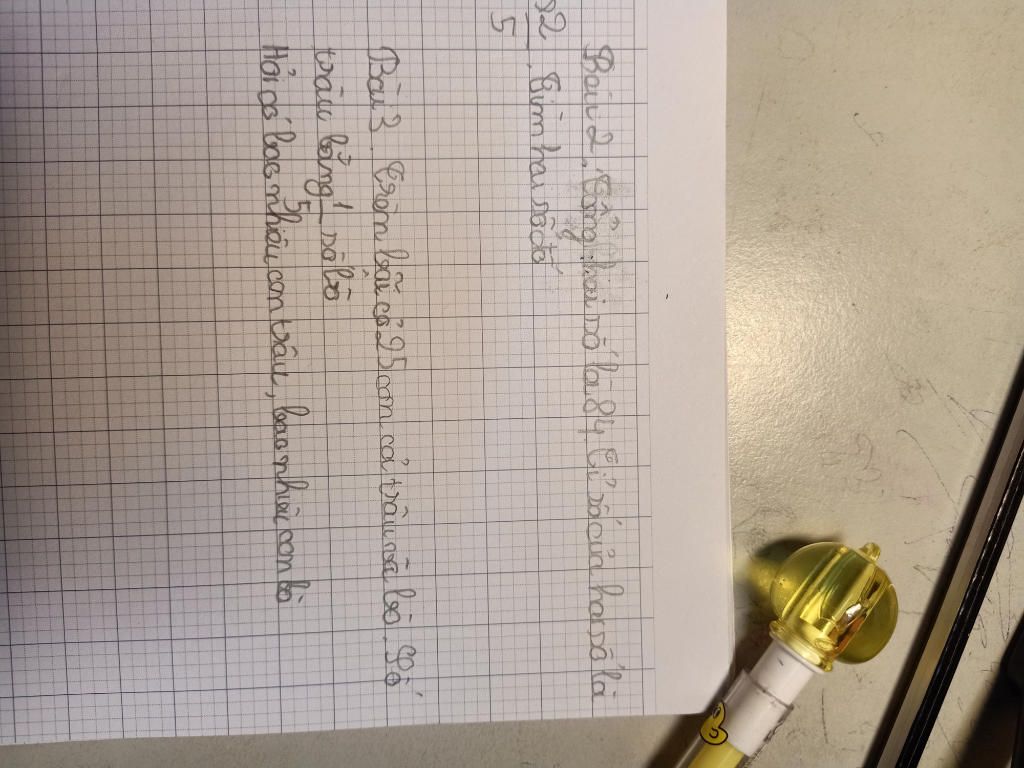 Bài 2. Tổng hai số là 84. Tỉ số của hai số là
2/5. Tìm hai số đó
Bài 3. Trên bãi cỏ 25 con cả trâu và bò. Số
trâu bằng 1/5 số bò
Hỏi có bao nhiêu con trâu, bao nhiêu con bò